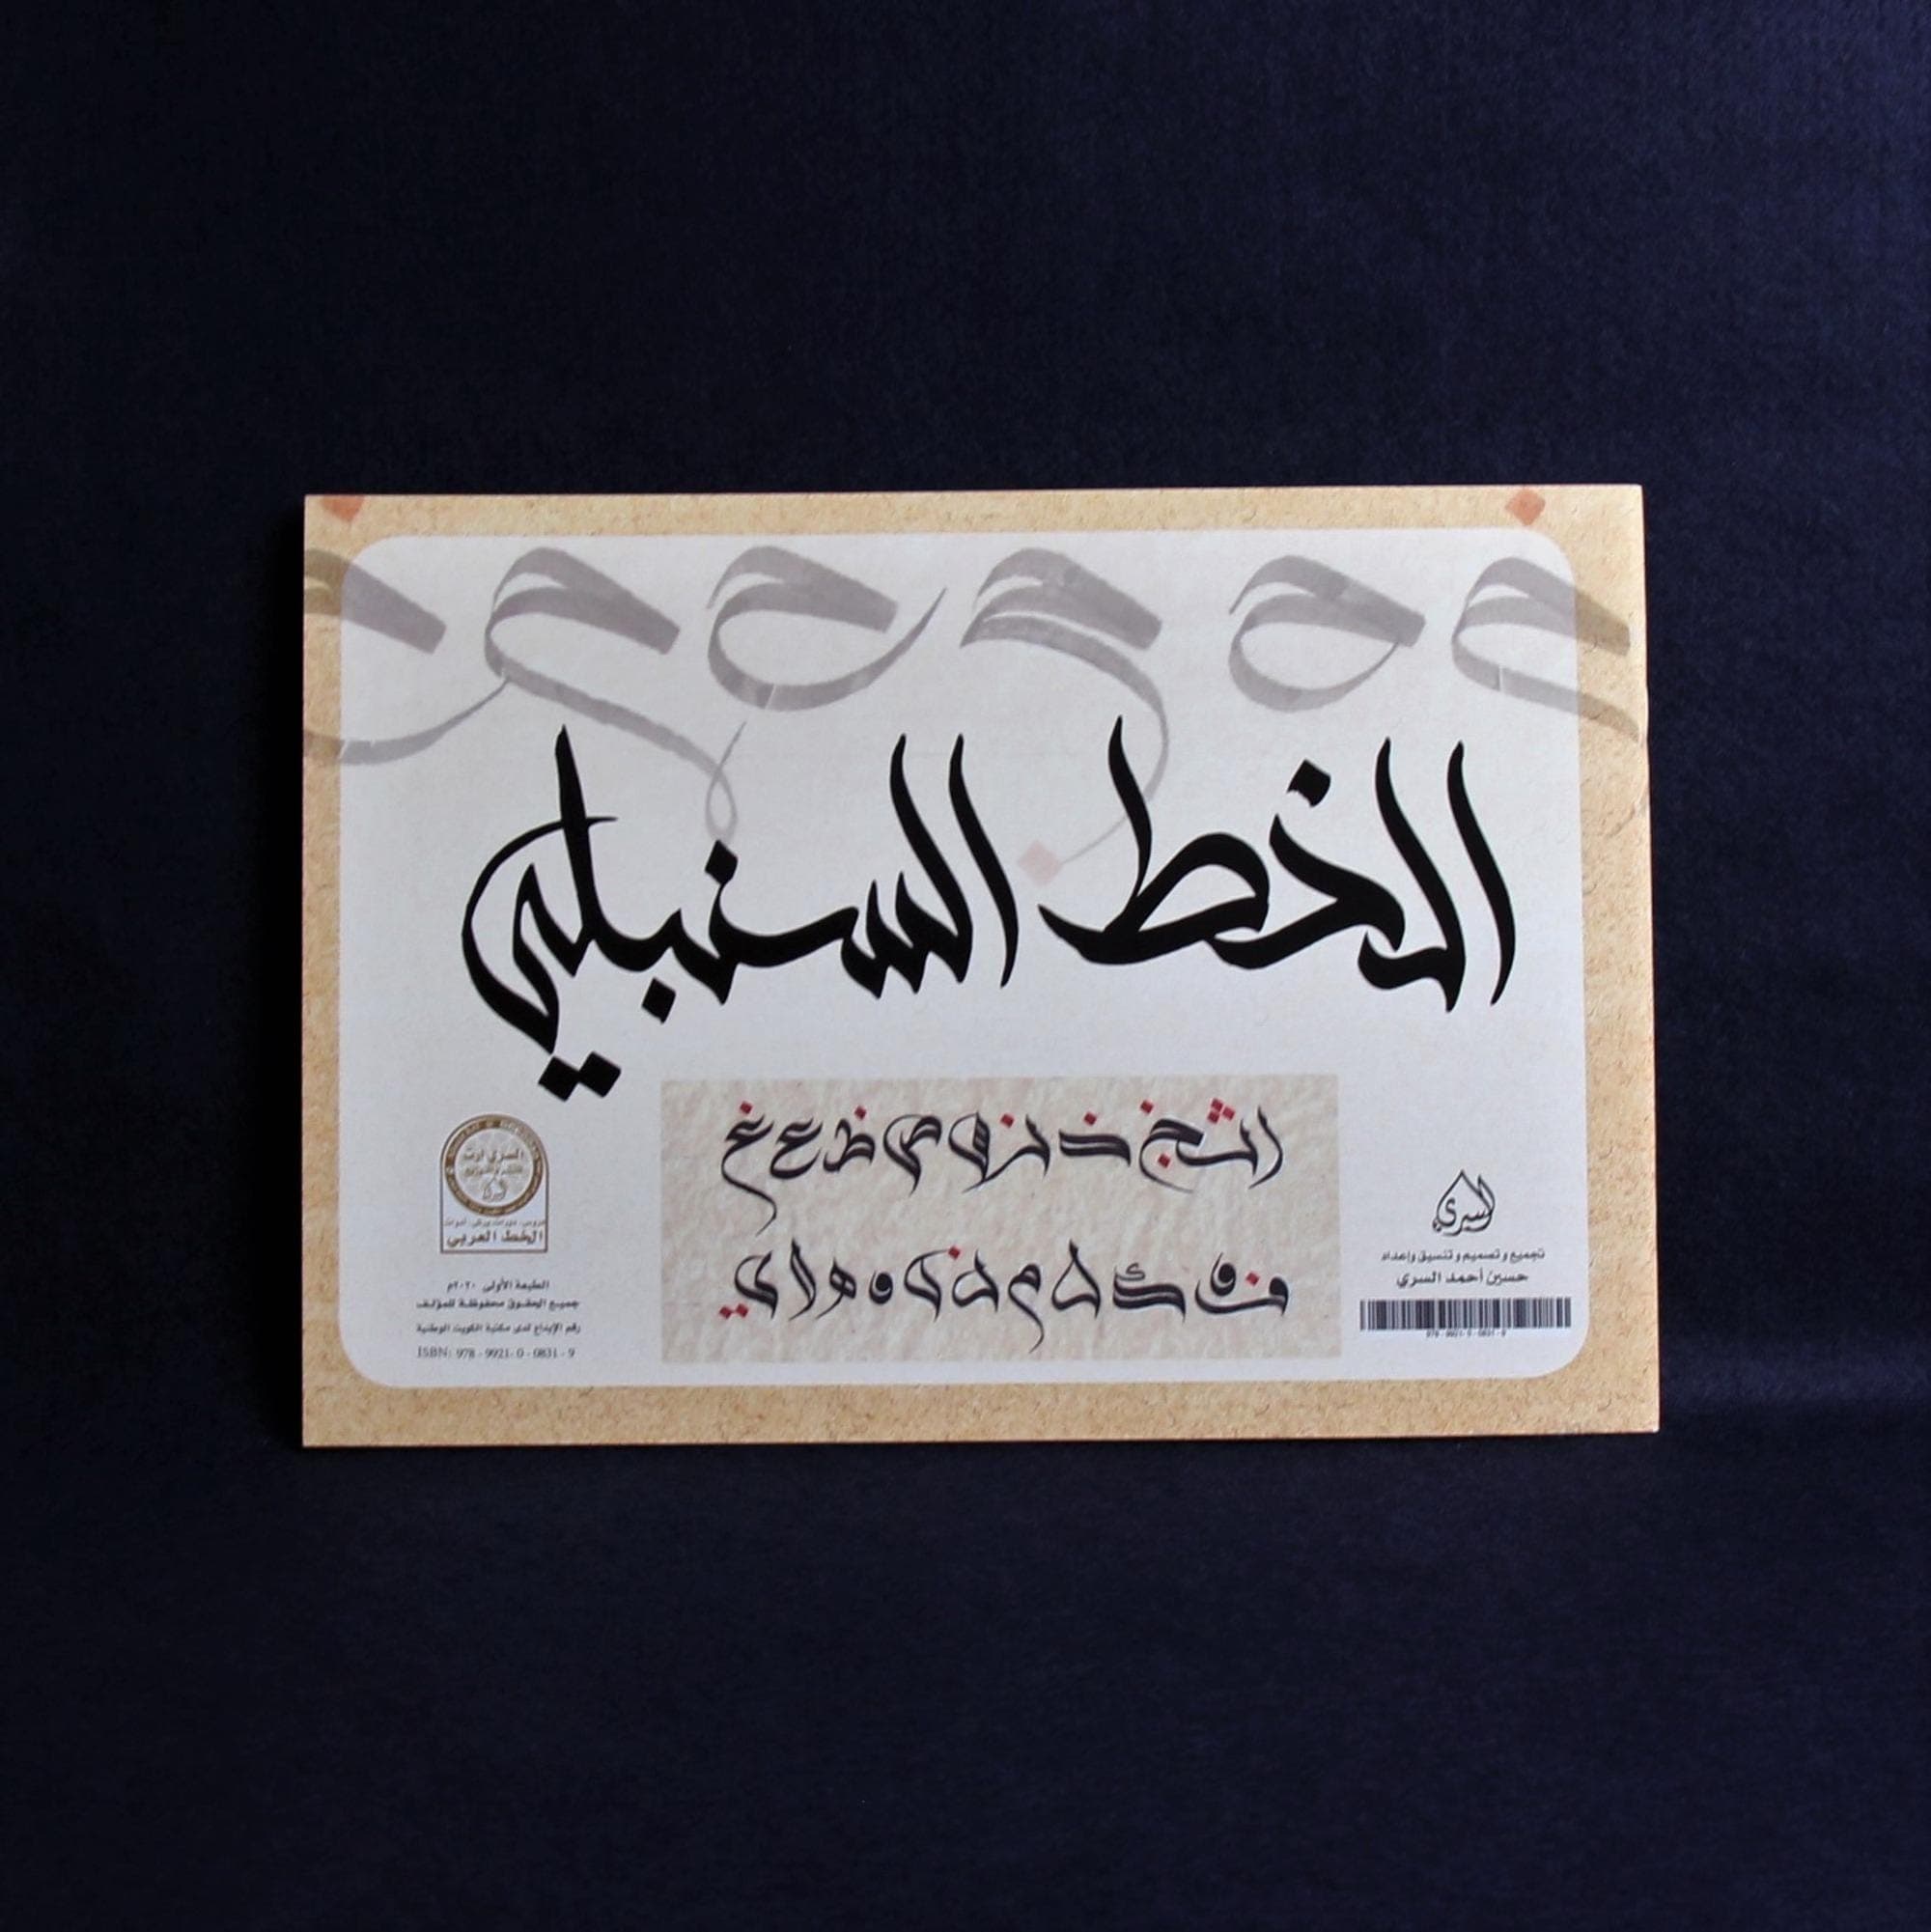 الخط السنبلي
ا ث خ ذ ز و ص ظ ع غ
ف ق ك ل م ن و ه لا ي
السري
تجميع و تصميم و تنسيق وإعداد
حسين أحمد السري
978 - 9921 - 0 - 0831 - 9
السري آرت
الخط العربي
الطبعة الأولى ٢٠٢٠م
جميع الحقوق محفوظة للمؤلف
رقم الإيداع لدى مكتبة الكويت الوطنية
ISBN: 978 - 9921 - 0 - 0831 - 9